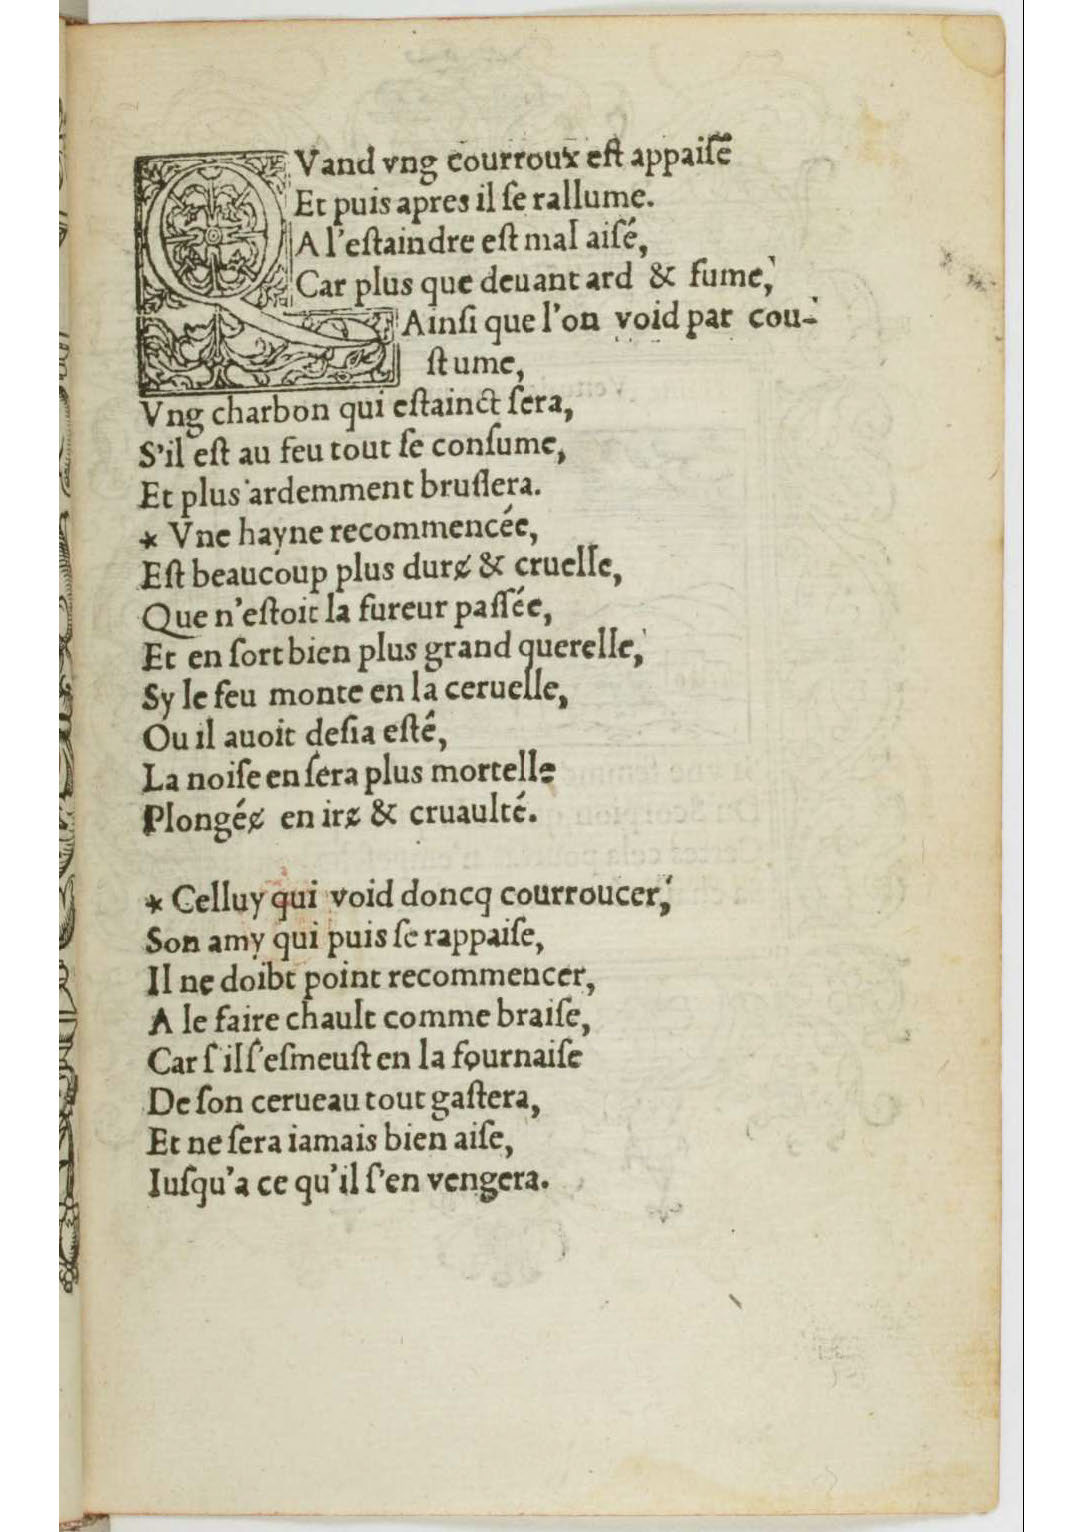 QVand vng courroux est appaisé
Et puis apres il se rallume.
A l'estaindre est mal aisé,
Car plus que deuant ard & fume,
Ainsi que l'on void par cou-
stume,
Vng charbon qui estainct sera,
S'il est au feu tout se consume,
Et plus ardemment bruslera.
* Vne hayne recommencée,
Est beaucoup plus durɇ & cruelle,
Que n'estoit la fureur passée,
Et en sort bien plus grand querelle,
Sy le feu monte en la ceruelle,
Ou il auoit desia esté,
La noise en sera plus mortelle
Plongéɇ en irɇ & cruaulté.
* Celluy qui void doncq courroucer,
Son amy qui puis se rappaise,
Il ne doibt point recommencer,
A le faire chault comme braise,
Car s'il s'esmeust en la fournaise
De son cerueau tout gastera,
Et ne sera iamais bien aise,
Iusqu'a ce qu'il s'en vengera.